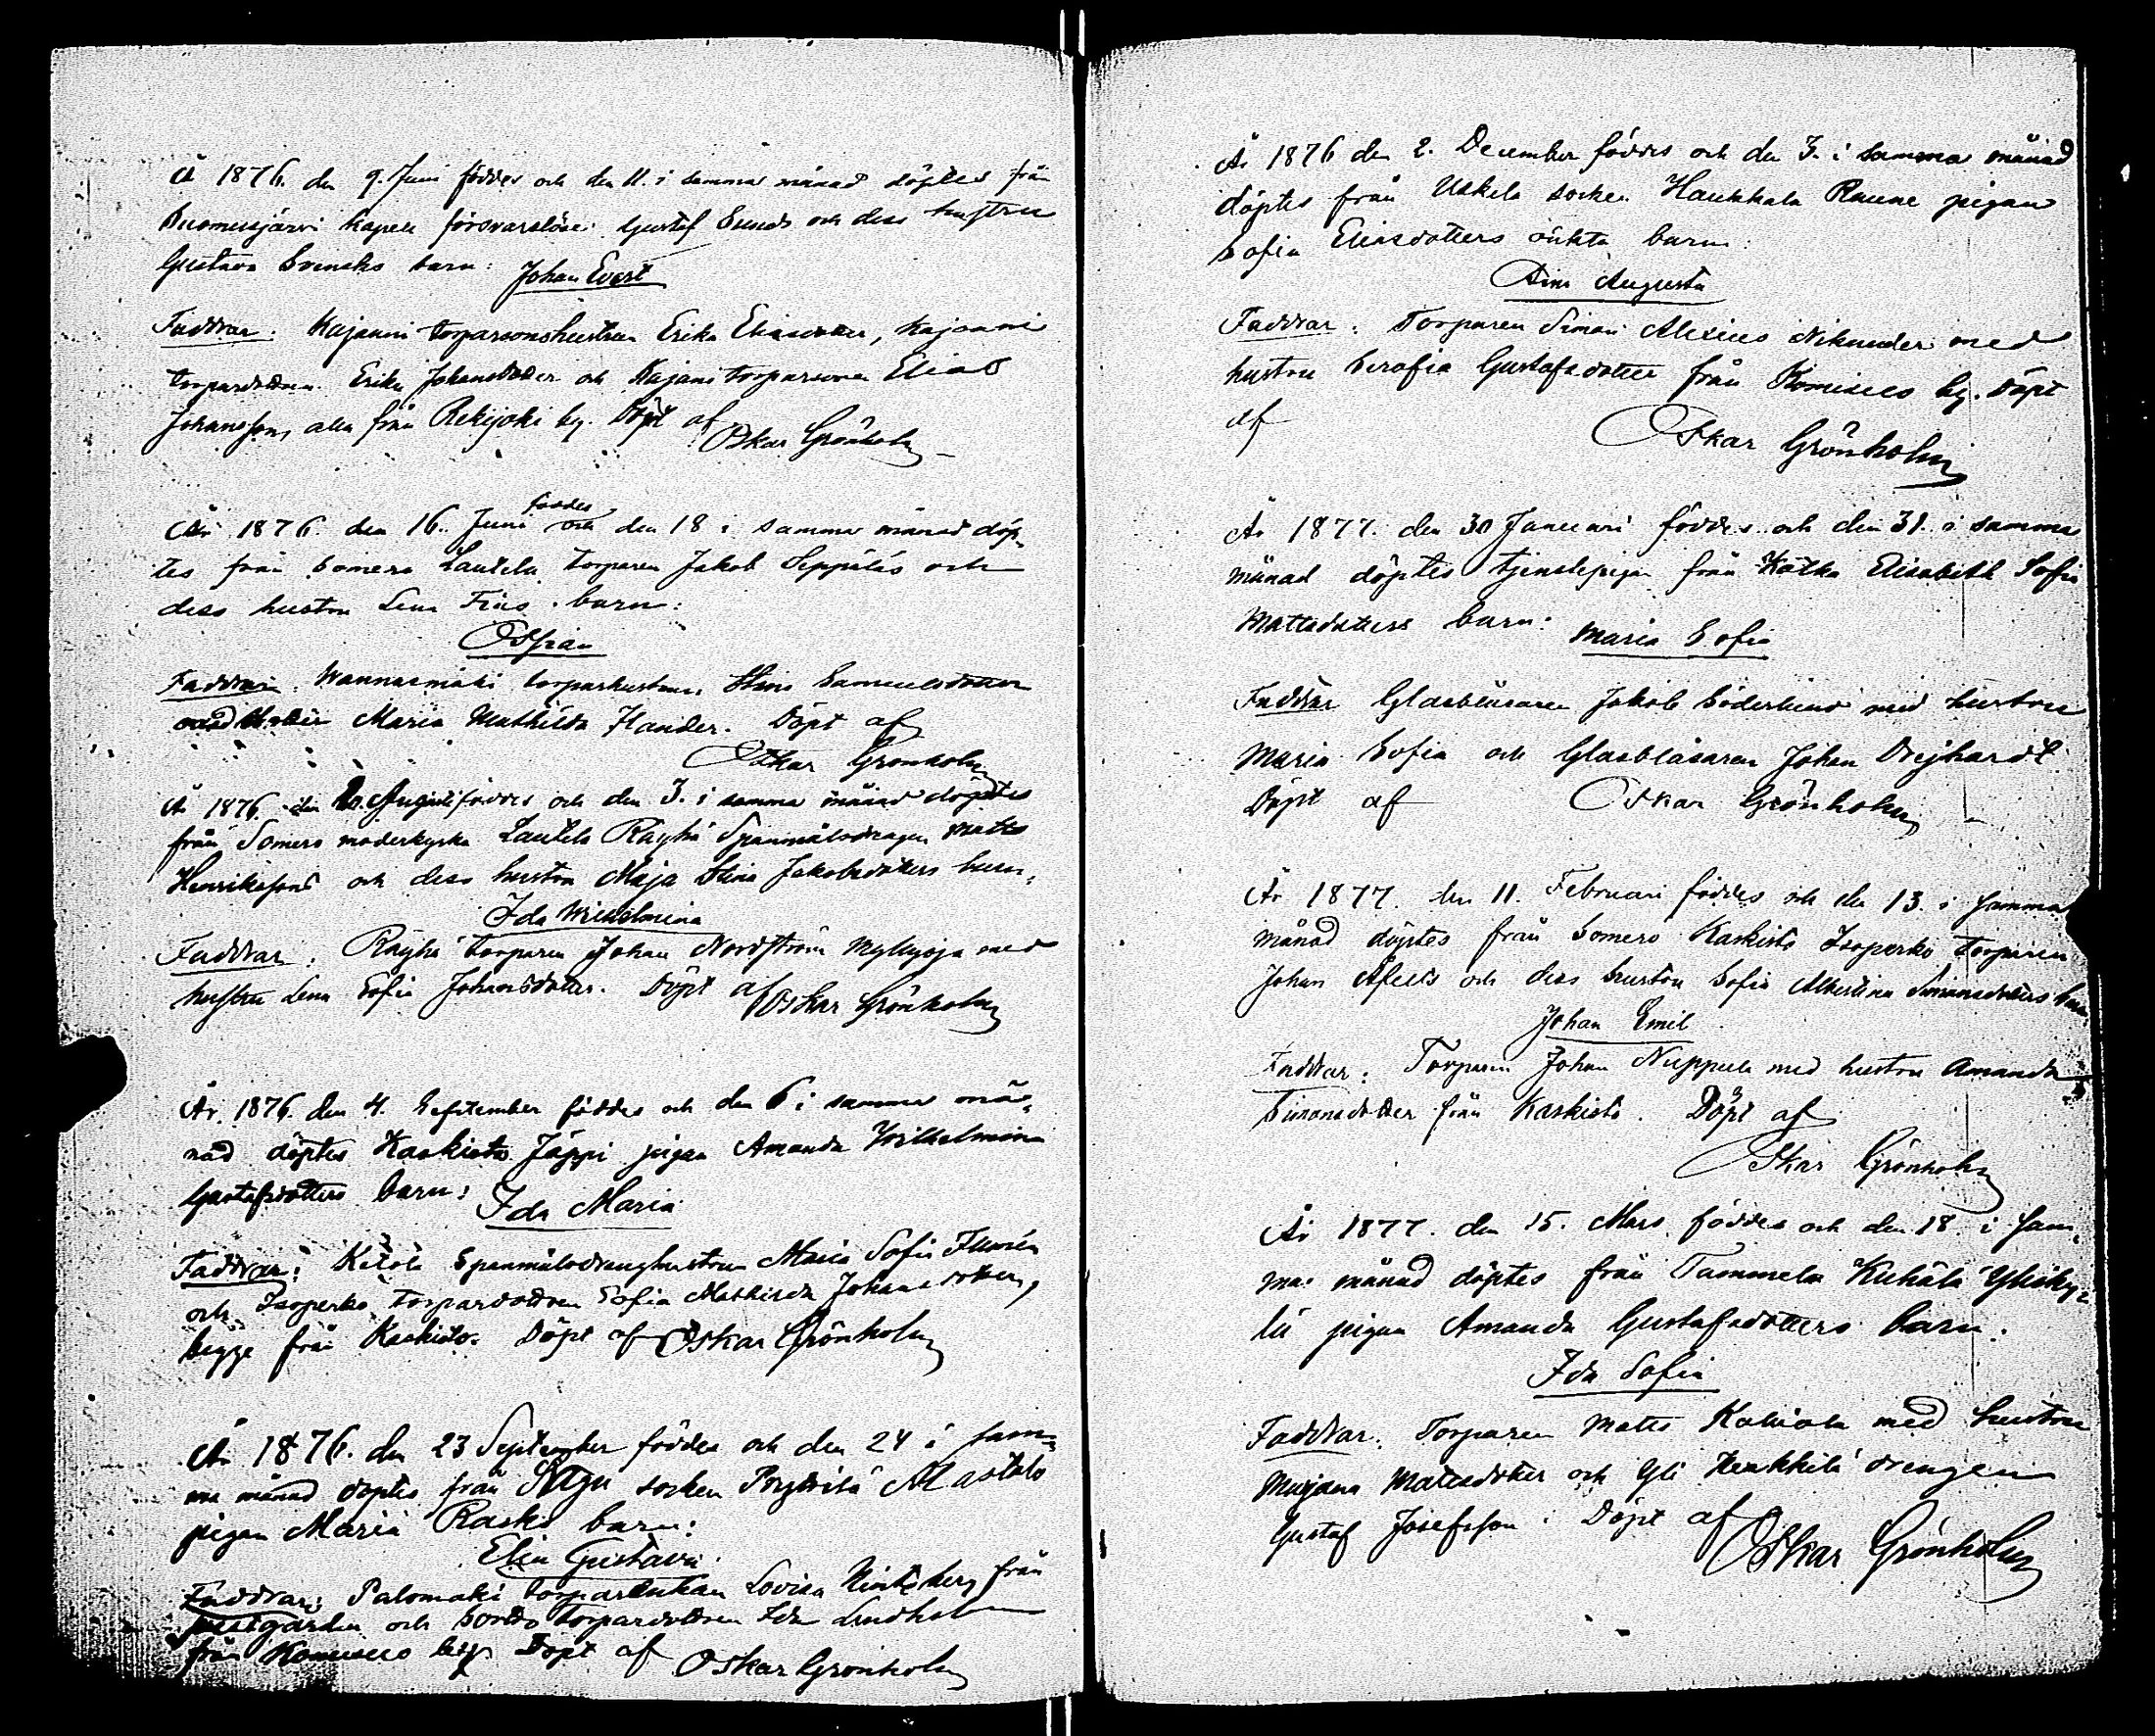 År 1876. den 9. Juni föddes och den 11. i samma månad döptes från
Suomusjärvi kapell försvarslöse Gustaf Sunds och dess hustru
Gustava Svensks barn: Johan Evert
Faddrar: Kajanni torparsonshustrun Erika Eliasdotter, Kajanni
torpardottren Erika Johansdotter och Kajani torparsonen Elias
Johansson, alla från Rekijoki by. Döpt af
Oskar Grönholm
År 1876 den 16. Juni föddes och den 18 i samma månad döp-
tes från Somero Lautela torparen Jakob Seppäläs och
dess hustru Lena Friis barn:
Faddrar: Wannasmäki torparhustrun Stina Samuelsdotter
Maria Mathilda Flander. Döpt af
Oskar Grönholm
År 1876 den 2. Augusti föddes och den 3. i samma månad döptes
från Somero moderkyrka Lautela Räyhä Spanmålsdrängen Matts
Henrikssons och dess hustru Maja Stina Jakobsdotters barn:
Ida Wilhelmina
Faddrar: Räyhä torparen Johan Nordström Myllyoja med
hustru Lena Sofia Johansdotter. Döpt af Oskar Grönholm
År 1876 den 4. September föddes och den 6 i samma må-
nad döptes Kaskisto Jäppi pigan Amanda Wilhelmina
Gustafsdotters barn: Ida Maria
Faddrar: Ketola Spanmålsdränghustrun Maria Sofia
och Isoperko torpardottren Sofia Mathilda Johansdotter,
begge från Kaskisto. Döpt af Oskar Grönholm
År 1876. den 23 September föddes och den 24 i sam-
ma månad döptes från Sagu socken Mastalo
pigan Maria Rasks barn:
Elin Gustava
Faddrar: Palomäki torparenkan Lovisa från
prestgården och Sordo torpardottren Ida Lindholm
från Komisuo by. Döpt af Oskar Grönholm
År 1876 den 2. December föddes och den 3. i samma månad
döptes från Uskela socken Haukkala Raune pigan
Sofia Eliasdotters oäkta barn:
Aina Augusta
Faddrar: Torparen Simon Alexius Nikander med
hustru Serafia Gustafsdotter från Komisuo by. Döpt
af
Oskar Grönholm
År 1877. den 30 Januari föddes och den 31. i samma
månad döptes tjenstepigan från Kätkä Elisabeth Sofia
Mattsdotters barn: Maria Sofia
Faddrar Glasblåsaren Jakob Söderlund med hustru
Maria Sofia och Glasblåsaren Johan Drejhardt.
Döpt af Oskar Grönholm
År 1877. den 11. Februari föddes och den 13. i samma
månad döptes från Somero Kaskisto Isoperko torparen
Johan och dess hustru Sofia Albertina Simonsdotters barn:
Johan Emil
Faddrar: Torparen Johan Nuppula med hustru Amanda
Simonsdotter från Kaskisto. Döpt af
Oskar Grönholm
År 1877. den 15. Mars föddes och den 18. i sam-
ma månad döptes från Tammela Kuhala Ylisky-
lä pigan Amanda Gustafsdotters barn:
Ida Sofia
Faddrar: Torparen Matts Kokiola med hustru
Marjana Mattsdotter och Yli Heikkilä drengen
Gustaf Josefsson. Döpt af
Oskar Grönholm